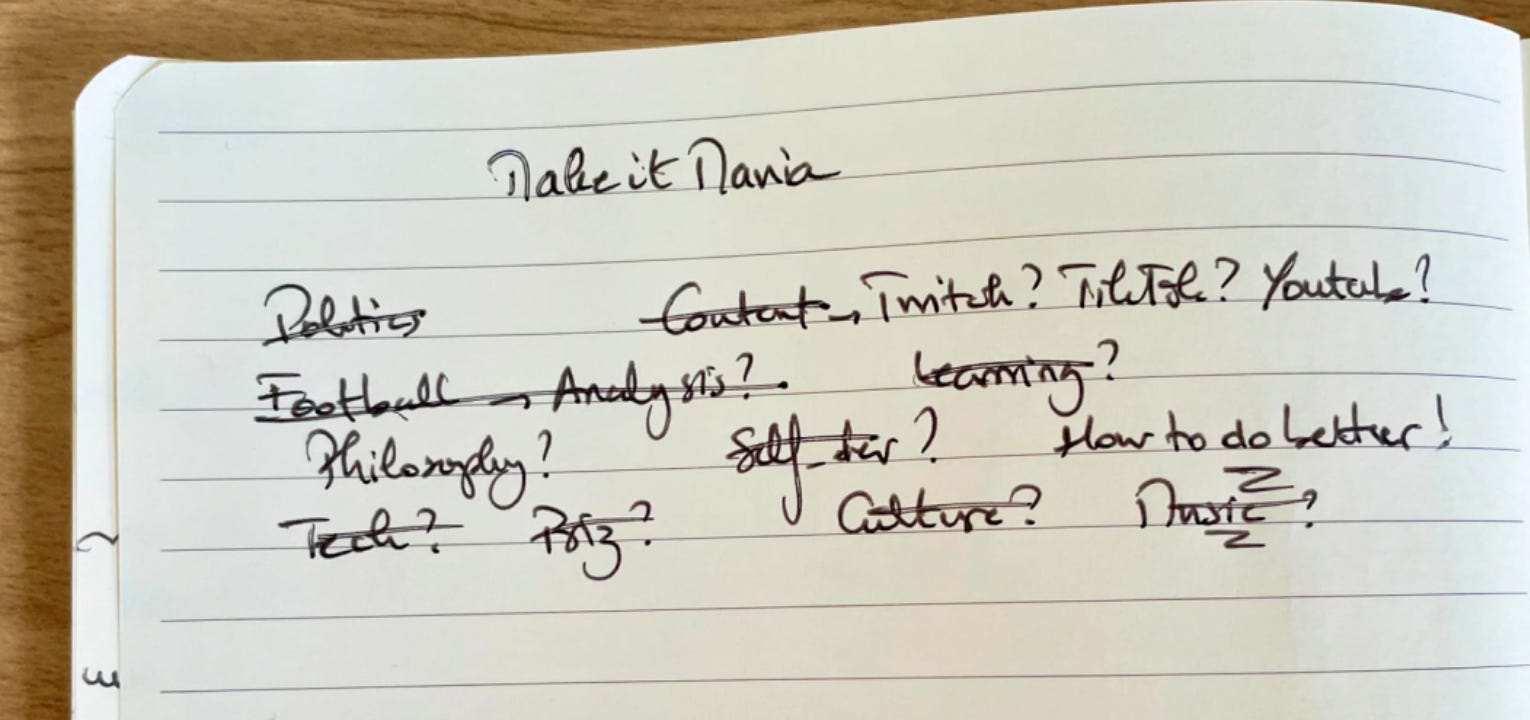 Make it Mania
Politics Content → Twitch? TikTok? Youtube?
Football → Analysis? Learning?
Philosophy? Self-dev? How to do better!
Tech? Biz? Culture? Music?